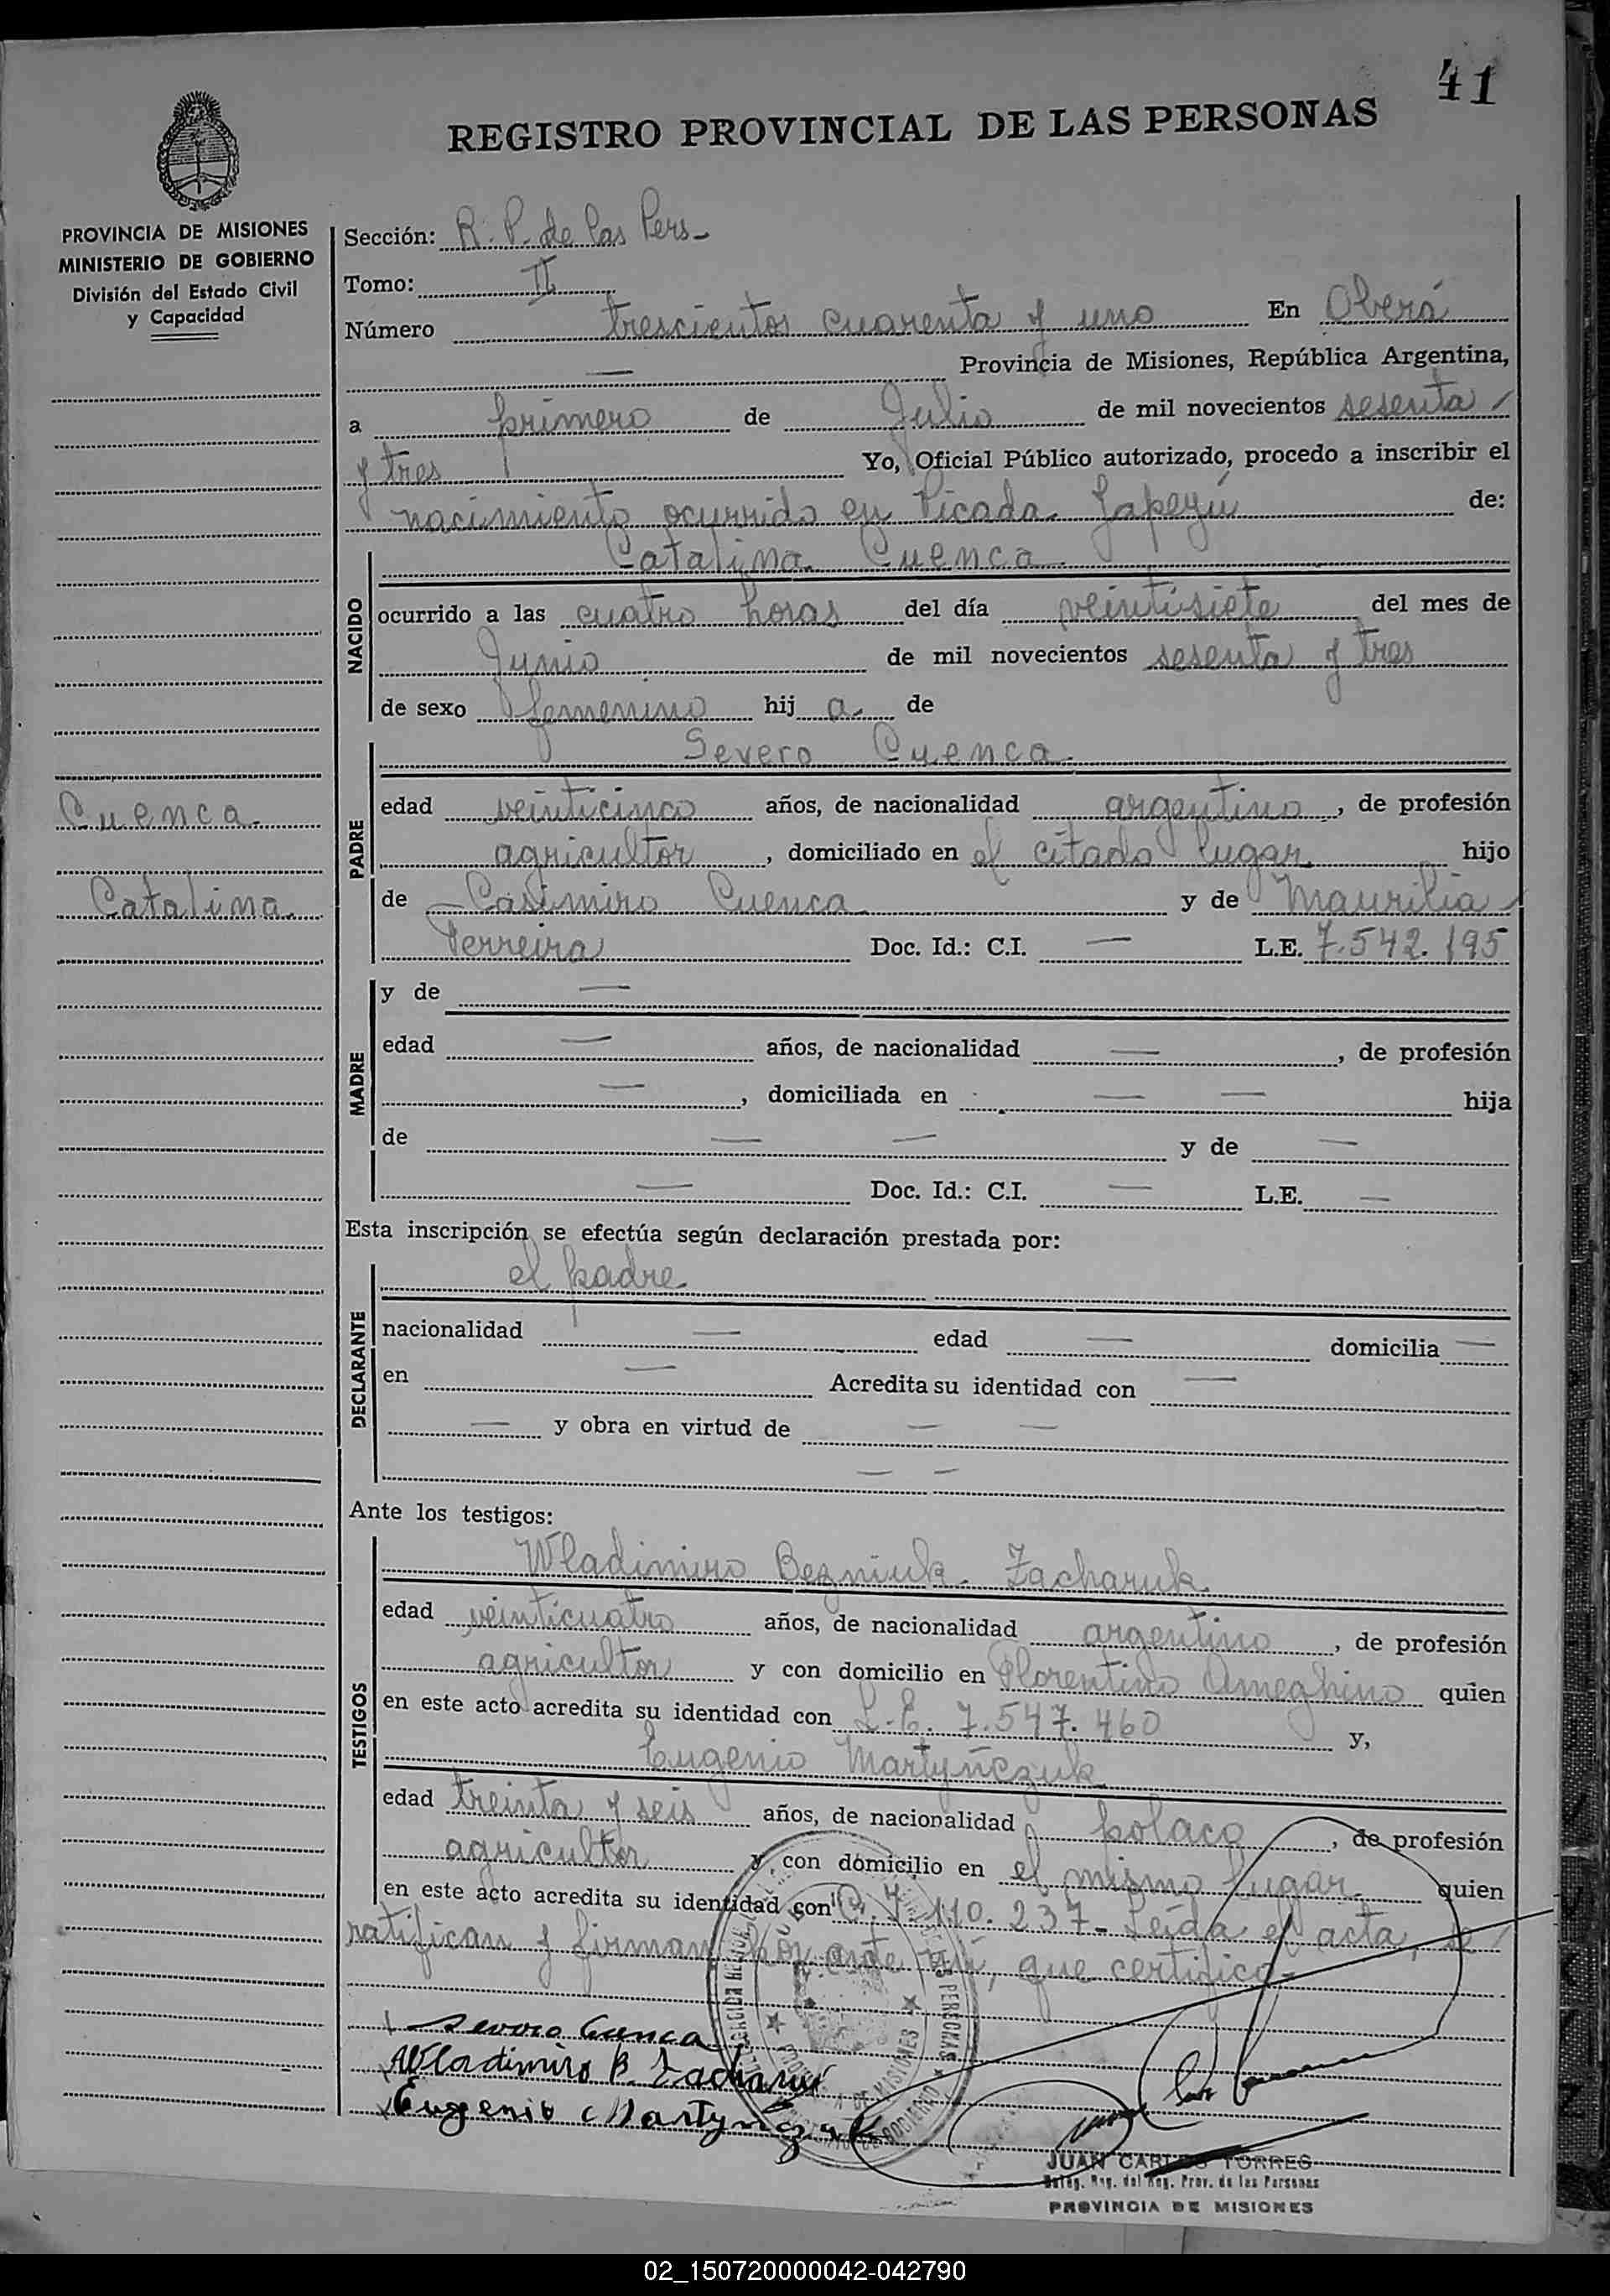 41
REGISTRO PROVINCIAL DE LAS PERSONAS
PROVINCIA DE MISIONES
MINISTERIO DE GOBIERNO
División del Estado Civil
y Capacidad
Sección: R. P. de las Pers-
Tomo: II
Número trescientos cuarenta y uno En Oberá
— Provincia de Misiones, República Argentina,
a primero de Julio de mil novecientos sesenta
y tres Yo, Oficial Público autorizado, procedo a inscribir el
nacimiento ocurrido en Picada Yapeyú de:
NACIDO
Catalina Cuenca
ocurrido a las cuatro horas del día veintisiete del mes de
Junio de mil novecientos sesenta y tres
de sexo femenino hij a. de
PADRE
Severo Cuenca
edad veinticinco años, de nacionalidad argentino, de profesión
agricultor, domiciliado en el citado lugar hijo
de Casimiro Cuenca y de Maurilia
Ferreira Doc. Id.: C.I. — L.E. 7.542.195
Cuenca
Catalina
MADRE
y de —
edad — años, de nacionalidad —, de profesión
—, domiciliada en — — hija
de — — y de —
— Doc. Id.: C.I. — L.E. —
Esta inscripción se efectúa según declaración prestada por:
DECLARANTE
el padre
nacionalidad — edad — domicilia —
en — Acredita su identidad con —
— y obra en virtud de — —
— —
Ante los testigos:
TESTIGOS
Wladimiro Bezniuk Zacharuk
edad veinticuatro años, de nacionalidad argentino, de profesión
agricultor y con domicilio en Florentino Ameghino quien
en este acto acredita su identidad con L.E. 7.547.460 y,
Eugenio Martyñczuk
edad treinta y seis años, de nacionalidad polaco, de profesión
agricultor y con domicilio en el mismo lugar quien
en este acto acredita su identidad con C.I. 110.237- Leída el acta, la
ratifican y firman por ante mí, que certifico-
Severo Cuenca
Wladimiro B. Zacharuk
Eugenio Martynczuk
PERSONAS
MISIONES
JUAN CARLOS TORRES
Deleg. Reg. del Reg. Prov. de las Personas
PROVINCIA DE MISIONES
02_150720000042-042790